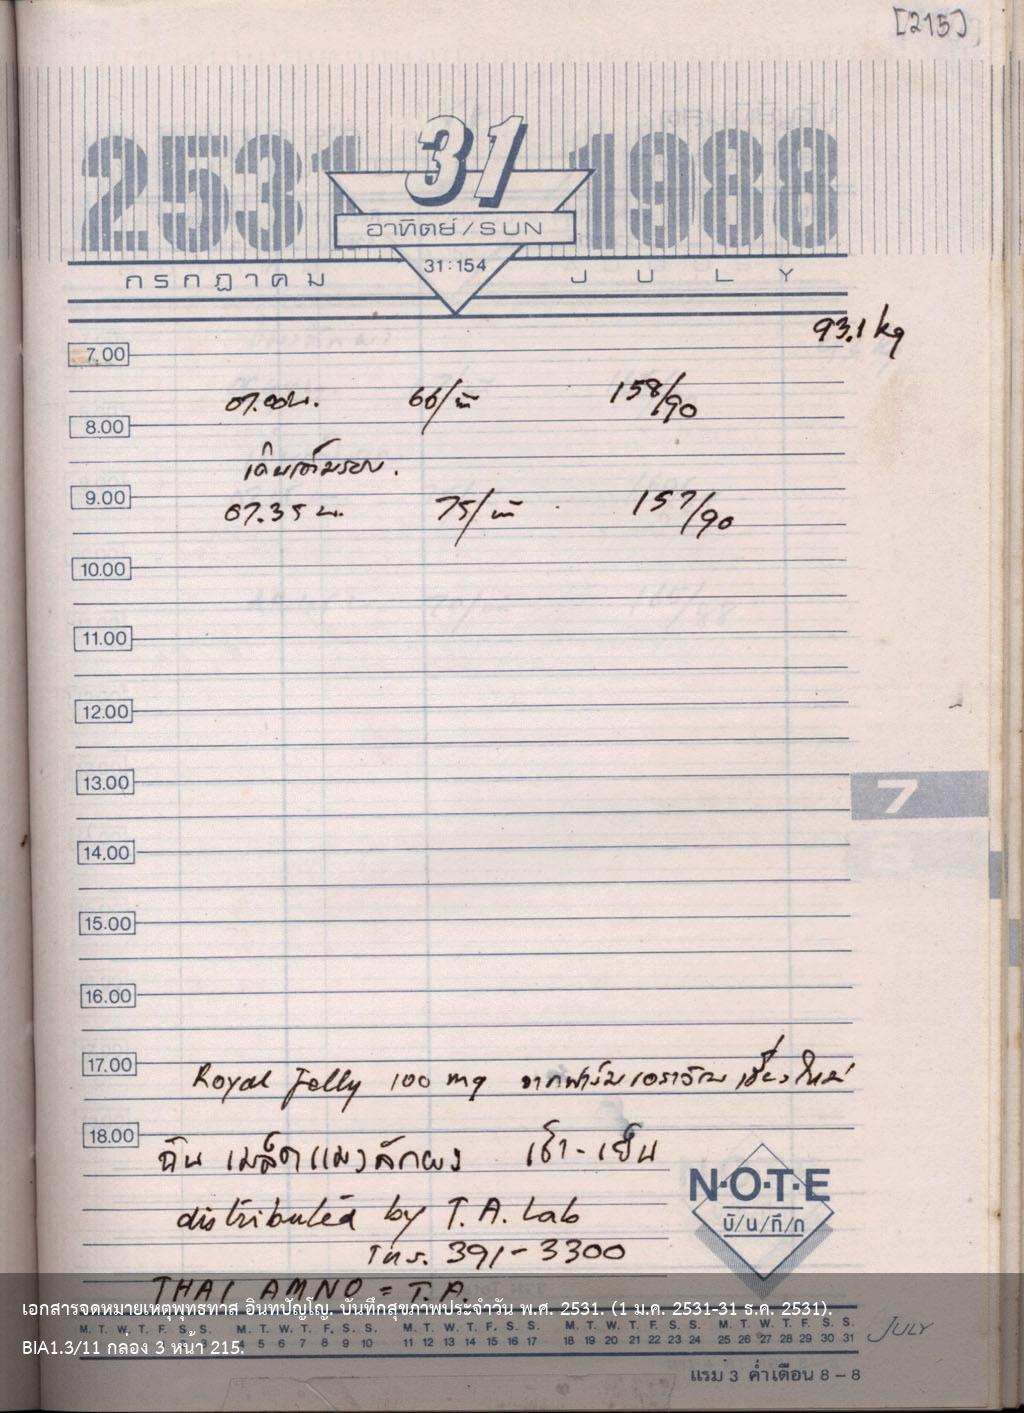 [215]
2531 31 1988
อาทิตย์/SUN
กรกฎาคม 31:154 JULY
93.1 kg
7.00
07.00น. 66/น 158/90
8.00
เดินเต็มรอบ.
9.00
07.35 น. 75/น 157/90
10.00
11.00
12.00
13.00
7
14.00
15.00
16.00
17.00
Royal Jelly 100 mg จากฟาร์มเอราวัณ เชียงใหม่
18.00
ฉัน เมล็ดแมงลักผง เช้า-เย็น
N·O·T·E
distributed by T.A. Lab
บั/น/ทึ/ก
โทร. 391-3300
THAI AMNO = T.A.
เอกสารจดหมายเหตุพุทธทาส อินทปัญโญ. บันทึกสุขภาพประจำวัน พ.ศ. 2531. (1 ม.ค. 2531-31 ธ.ค. 2531).
M. T. W. T. F. S. S. M. T. W. T. F. S. S. M. T. W. T. F. S. S. M. T. W. T. F. S. S. M. T. W. T. F. S. S.
4 5 6 7 8 9 10 11 12 13 14 15 16 17 18 19 20 21 22 23 24 25 26 27 28 29 30 31 JULY
BIA1.3/11 กล่อง 3 หน้า 215.
แรม 3 ค่ำเดือน 8 – 8